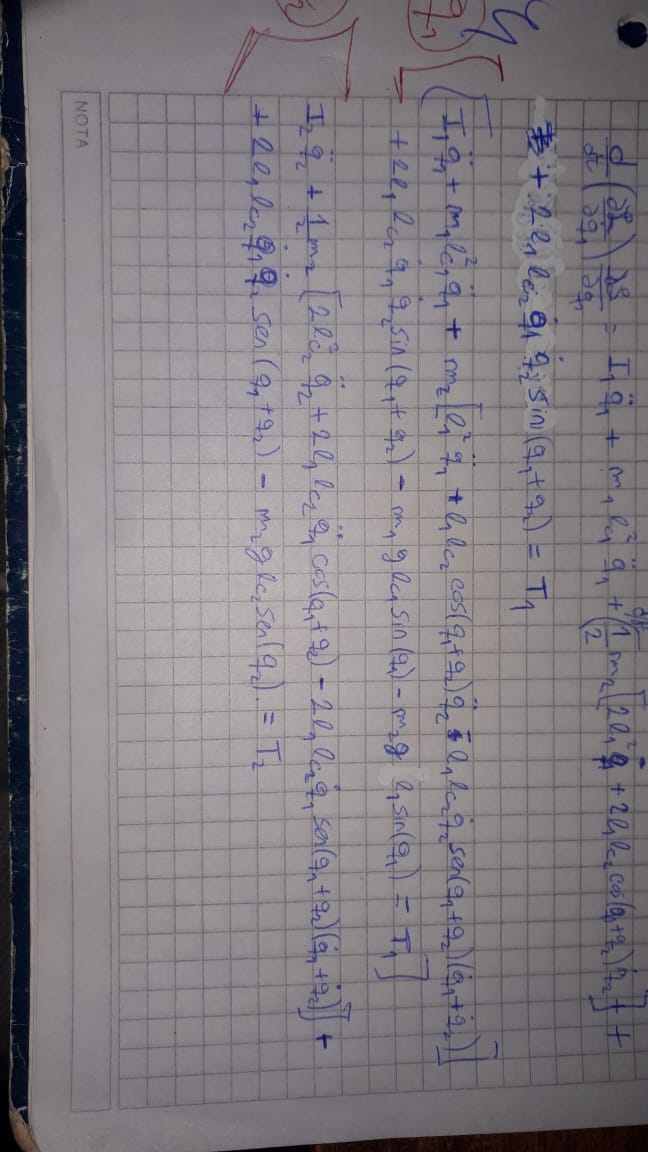 d/dt (∂L/∂q̇₁) ∂L/∂q₁ = I₁ q̈₁ + m₁ l²c₁ q̈₁ + d/dt (1/2 m₂ [2l₁² q̇₁ + 2l₁ lc₂ cos(q₁+q₂) q̇₂] +
+ 2l₁ lc₂ q̇₁ q̇₂ sin(q₁+q₂) = T₁
q₁ [[I₁q̈₁ + m₁l²c₁q̈₁ + m₂ [l₁² q̈₁ + l₁ lc₂ cos(q₁+q₂) q̈₂ - l₁ lc₂ q̇₂ sen(q₁+q₂)(q̇₁+q̇₂)]
+ 2l₁ lc₂ q̇₁ q̇₂ sin(q₁+q₂) - m₁ g lc₁ sin(q₁) - m₂g l₁ sin(q₁) = T₁]
₂ [I₂ q̈₂ + 1/2 m₂ [2l²c₂ q̈₂ + 2l₁ lc₂ q̈₁ cos(q₁+q₂) - 2l₁ lc₂ q̇₁ sen(q₁+q₂)(q̇₁+q̇₂)] +
+ 2l₁ lc₂ q̇₁ q̇₂ sen(q₁+q₂) - m₂g lc₂ sen(q₂). = T₂
NOTA